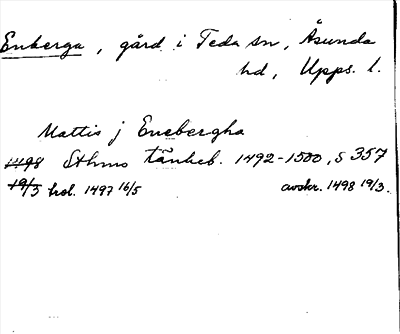 Enberga, gård i Teda sn, Åsunda
hd, Upps. l.
Mattis j Enebergha
1498 Sthms tänkeb. 1492-1500, s 357
19/3 hol. 1497 16/5 avskr. 1498 19/3.